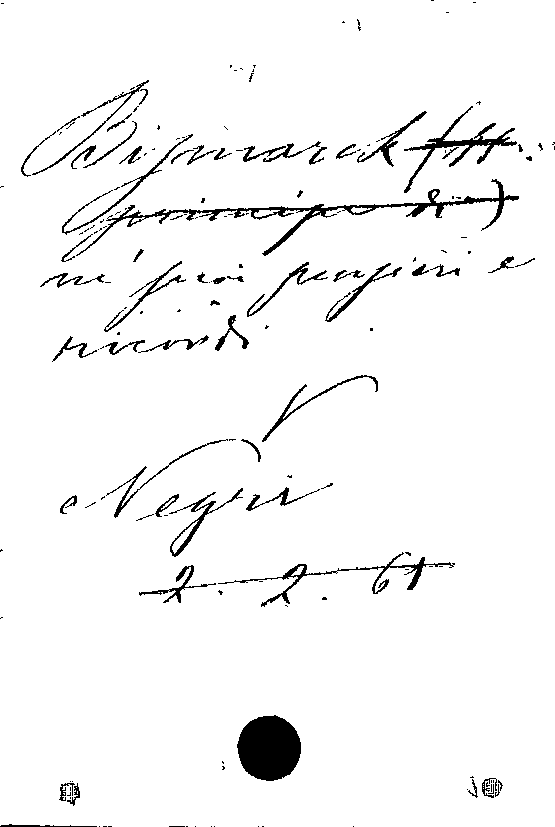 Bismarck (il
principe di)
ne' suoi pensieri e
ricordi
V
Negri
2. 2. 61